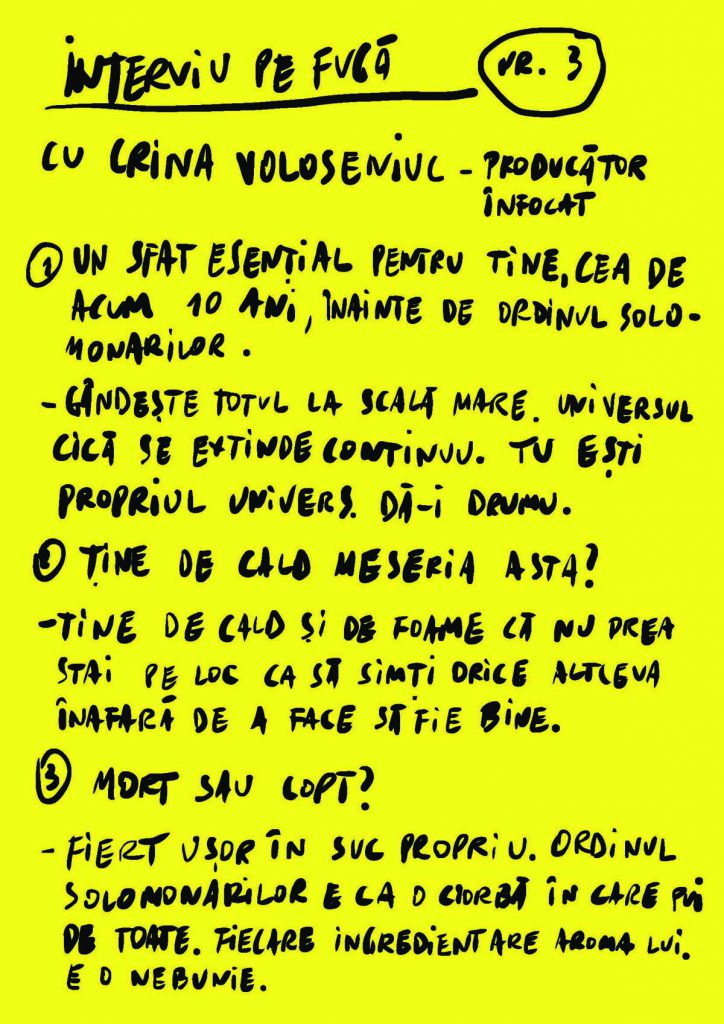 INTERVIU PE FUGĂ
NR. 3
CU CRINA VOLOSENIUC - PRODUCĂTOR
ÎNFOCAT
1 UN SFAT ESENȚIAL PENTRU TINE, CEA DE
ACUM 10 ANI, ÎNAINTE DE ORDINUL SOLO-
MONARILOR.
- GÂNDEȘTE TOTUL LA SCALĂ MARE. UNIVERSUL
CICĂ SE EXTINDE CONTINUU. TU EȘTI
PROPRIUL UNIVERS. DĂ-I DRUMU.
2 ȚINE DE CALD MESERIA ASTA?
- ȚINE DE CALD ȘI DE FOAME CĂ NU PREA
STAI PE LOC CA SĂ SIMȚI ORICE ALTCEVA
ÎNAFARĂ DE A FACE SĂ FIE BINE.
3 MORT SAU COPT?
- FIERT UȘOR ÎN SUC PROPRIU. ORDINUL
SOLOMONARILOR E CA O CIORBĂ ÎN CARE PUI
DE TOATE. FIECARE INGREDIENT ARE AROMA LUI.
E O NEBUNIE.